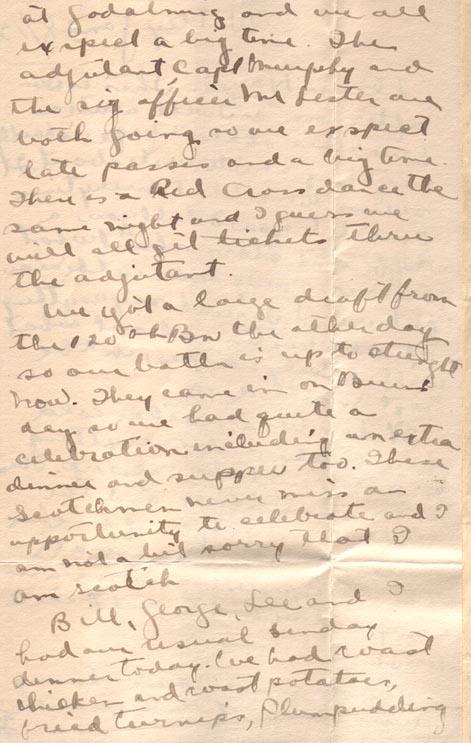 at Godalming and we all
expect a big time. The
adjutant, Capt Murphy and
the sig officer Mr Lester are
both going so we expect
late passes and a big time.
There is a Red Cross dance the
same night and I guess we
will all get tickets thru
the adjutant.
We got a large draft from
the 120th Bn the other day
so our battn is up to strenght
now. They came in on Burns
day so we had quite a
celebration including an extra
dinner and supper too. These
Scotchmen never miss an
opportunity to celebrate and I
am not a bit sorry that I
am scotch
Bill, George, Lee and I
had our usual Sunday
dinner today. We had roast
chicken and roast potatoes,
fried turnips, Plumpudding